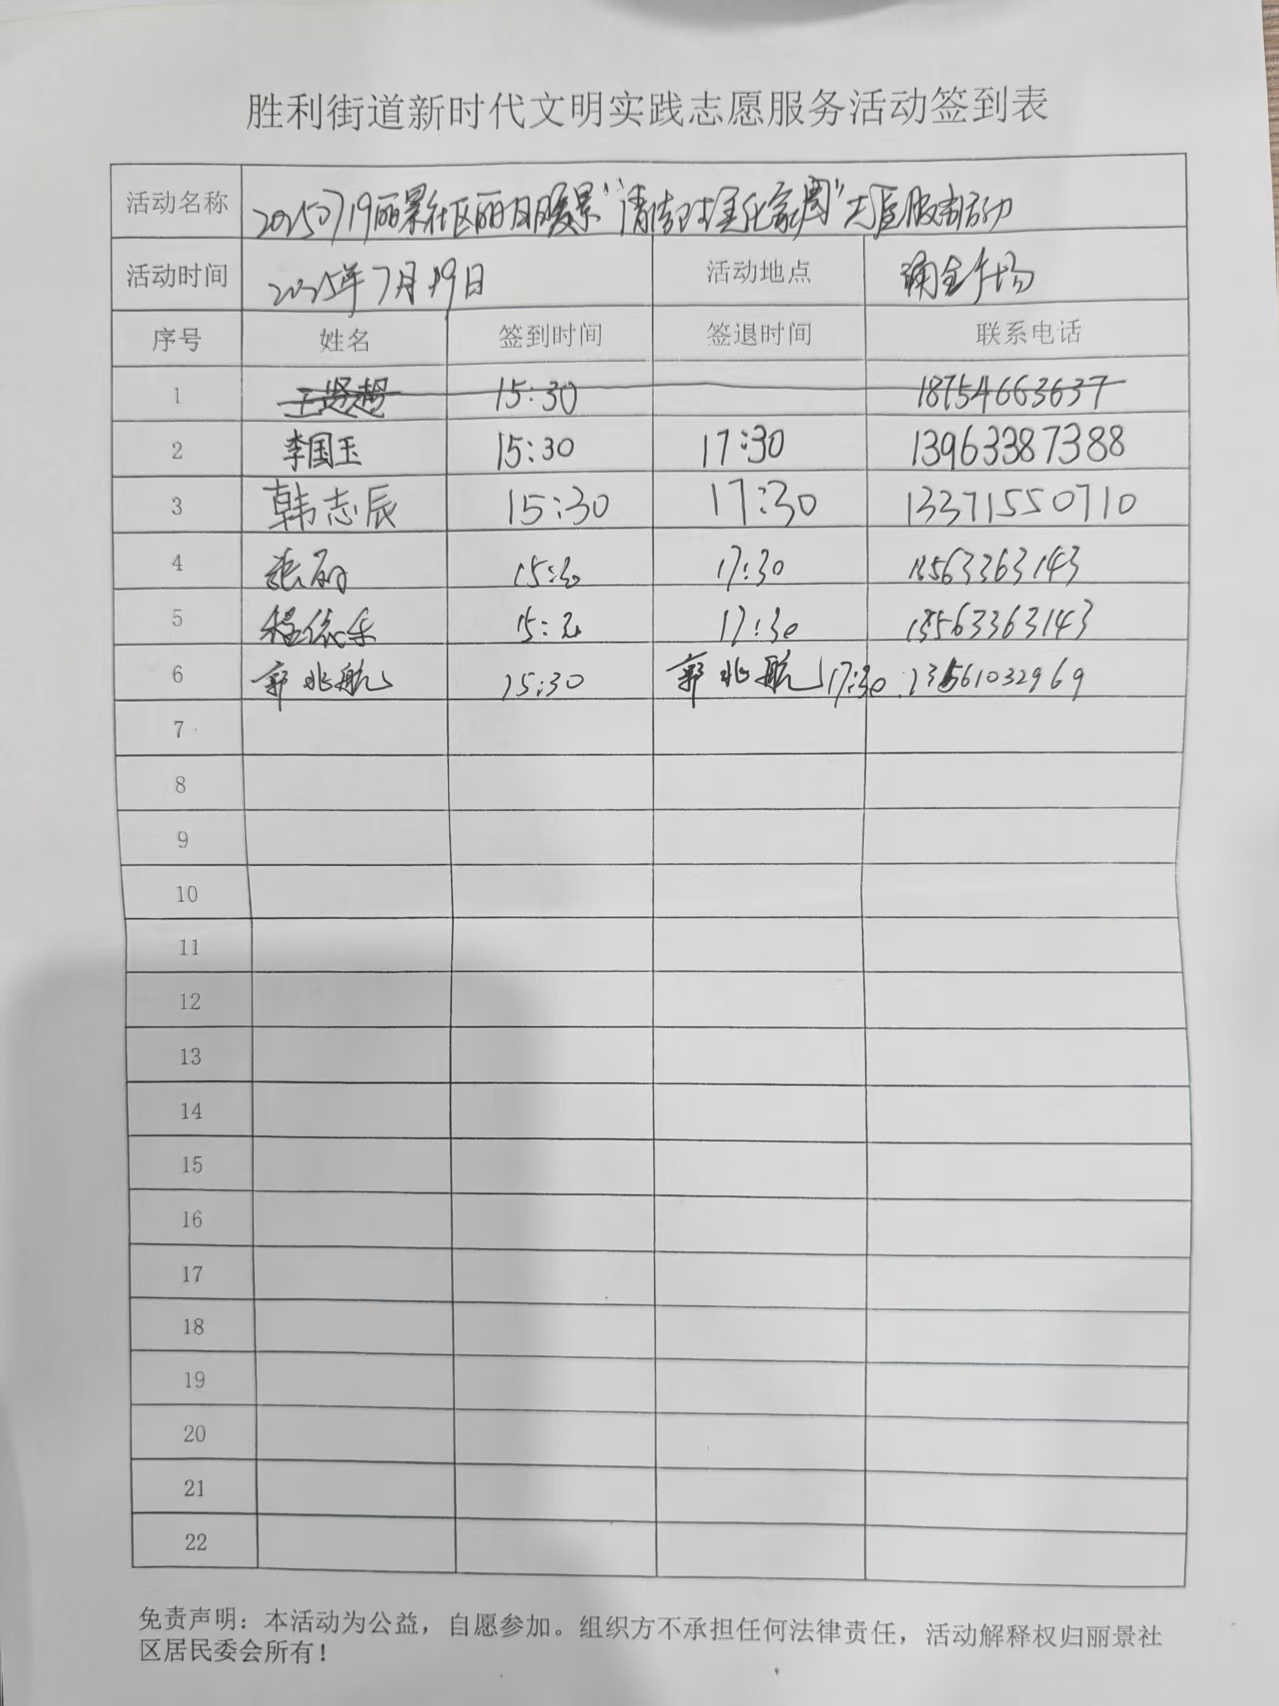 胜利街道新时代文明实践志愿服务活动签到表
活动名称 20250719丽景社区丽日暖景"清洁美化家园"志愿服务活动
活动时间 2025年7月19日 活动地点 广场
序号 姓名 签到时间 签退时间 联系电话
1 王贤超 15:30 18754663637
2 李国玉 15:30 17:30 13963387388
3 韩志辰 15:30 17:30 13371550710
4 张丽 15:30 17:30 13563363143
5 程依乐 15:30 17:30 13563363143
6 郭兆航 15:30 郭兆航 17:30 13561032969
7
8
9
10
11
12
13
14
15
16
17
18
19
20
21
22
免责声明：本活动为公益，自愿参加。组织方不承担任何法律责任，活动解释权归丽景社
区居民委会所有！